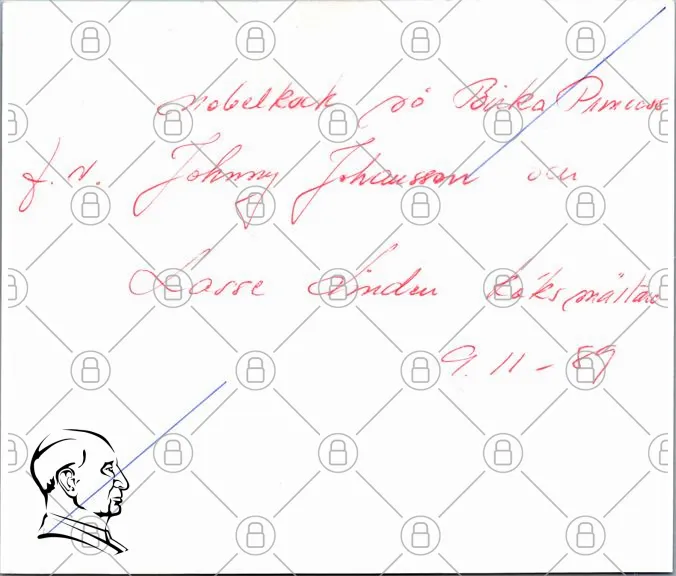 nobelkock på Birka Princess
f. v. Johnny Johansson och
Lasse Linden köksmästare
9.11-89